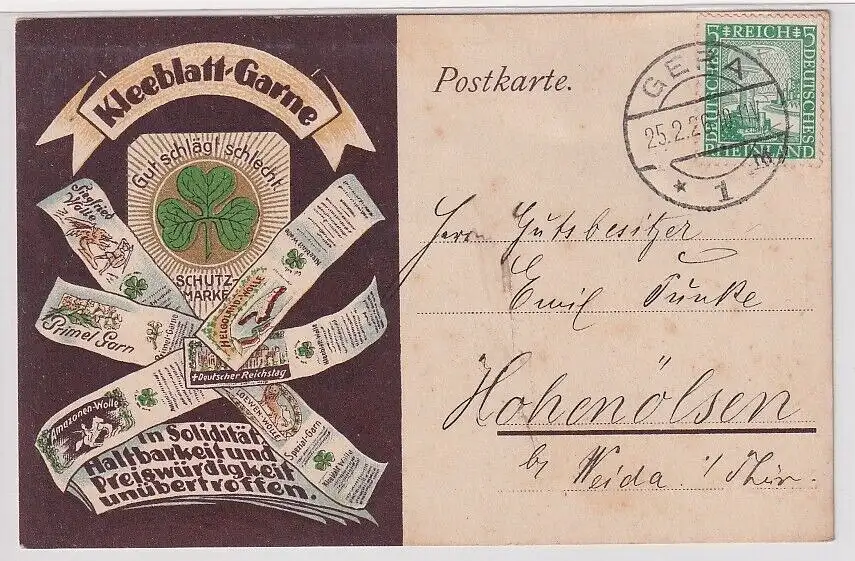 Kleeblatt-Garne
Gut schlägt schlecht
SCHUTZ-
MARKE
Siegfried
Wolle
Primel Garn
Amazonen-Wolle
HELGOLAND-WOLLE
+Deutscher Reichstag
LOEWEN-WOLLE
Spezial-Garn
In Solidität,
Haltbarkeit und
Preiswürdigkeit
unübertroffen.
Postkarte.
5 REICH 5
DEUTSCHES
DEUTSCHES
RHEINLAND
GERA
25.2.26
* 1
Herrn Gutsbesitzer
Emil Funke
Hohenölsen
by Weida. i/Thür.